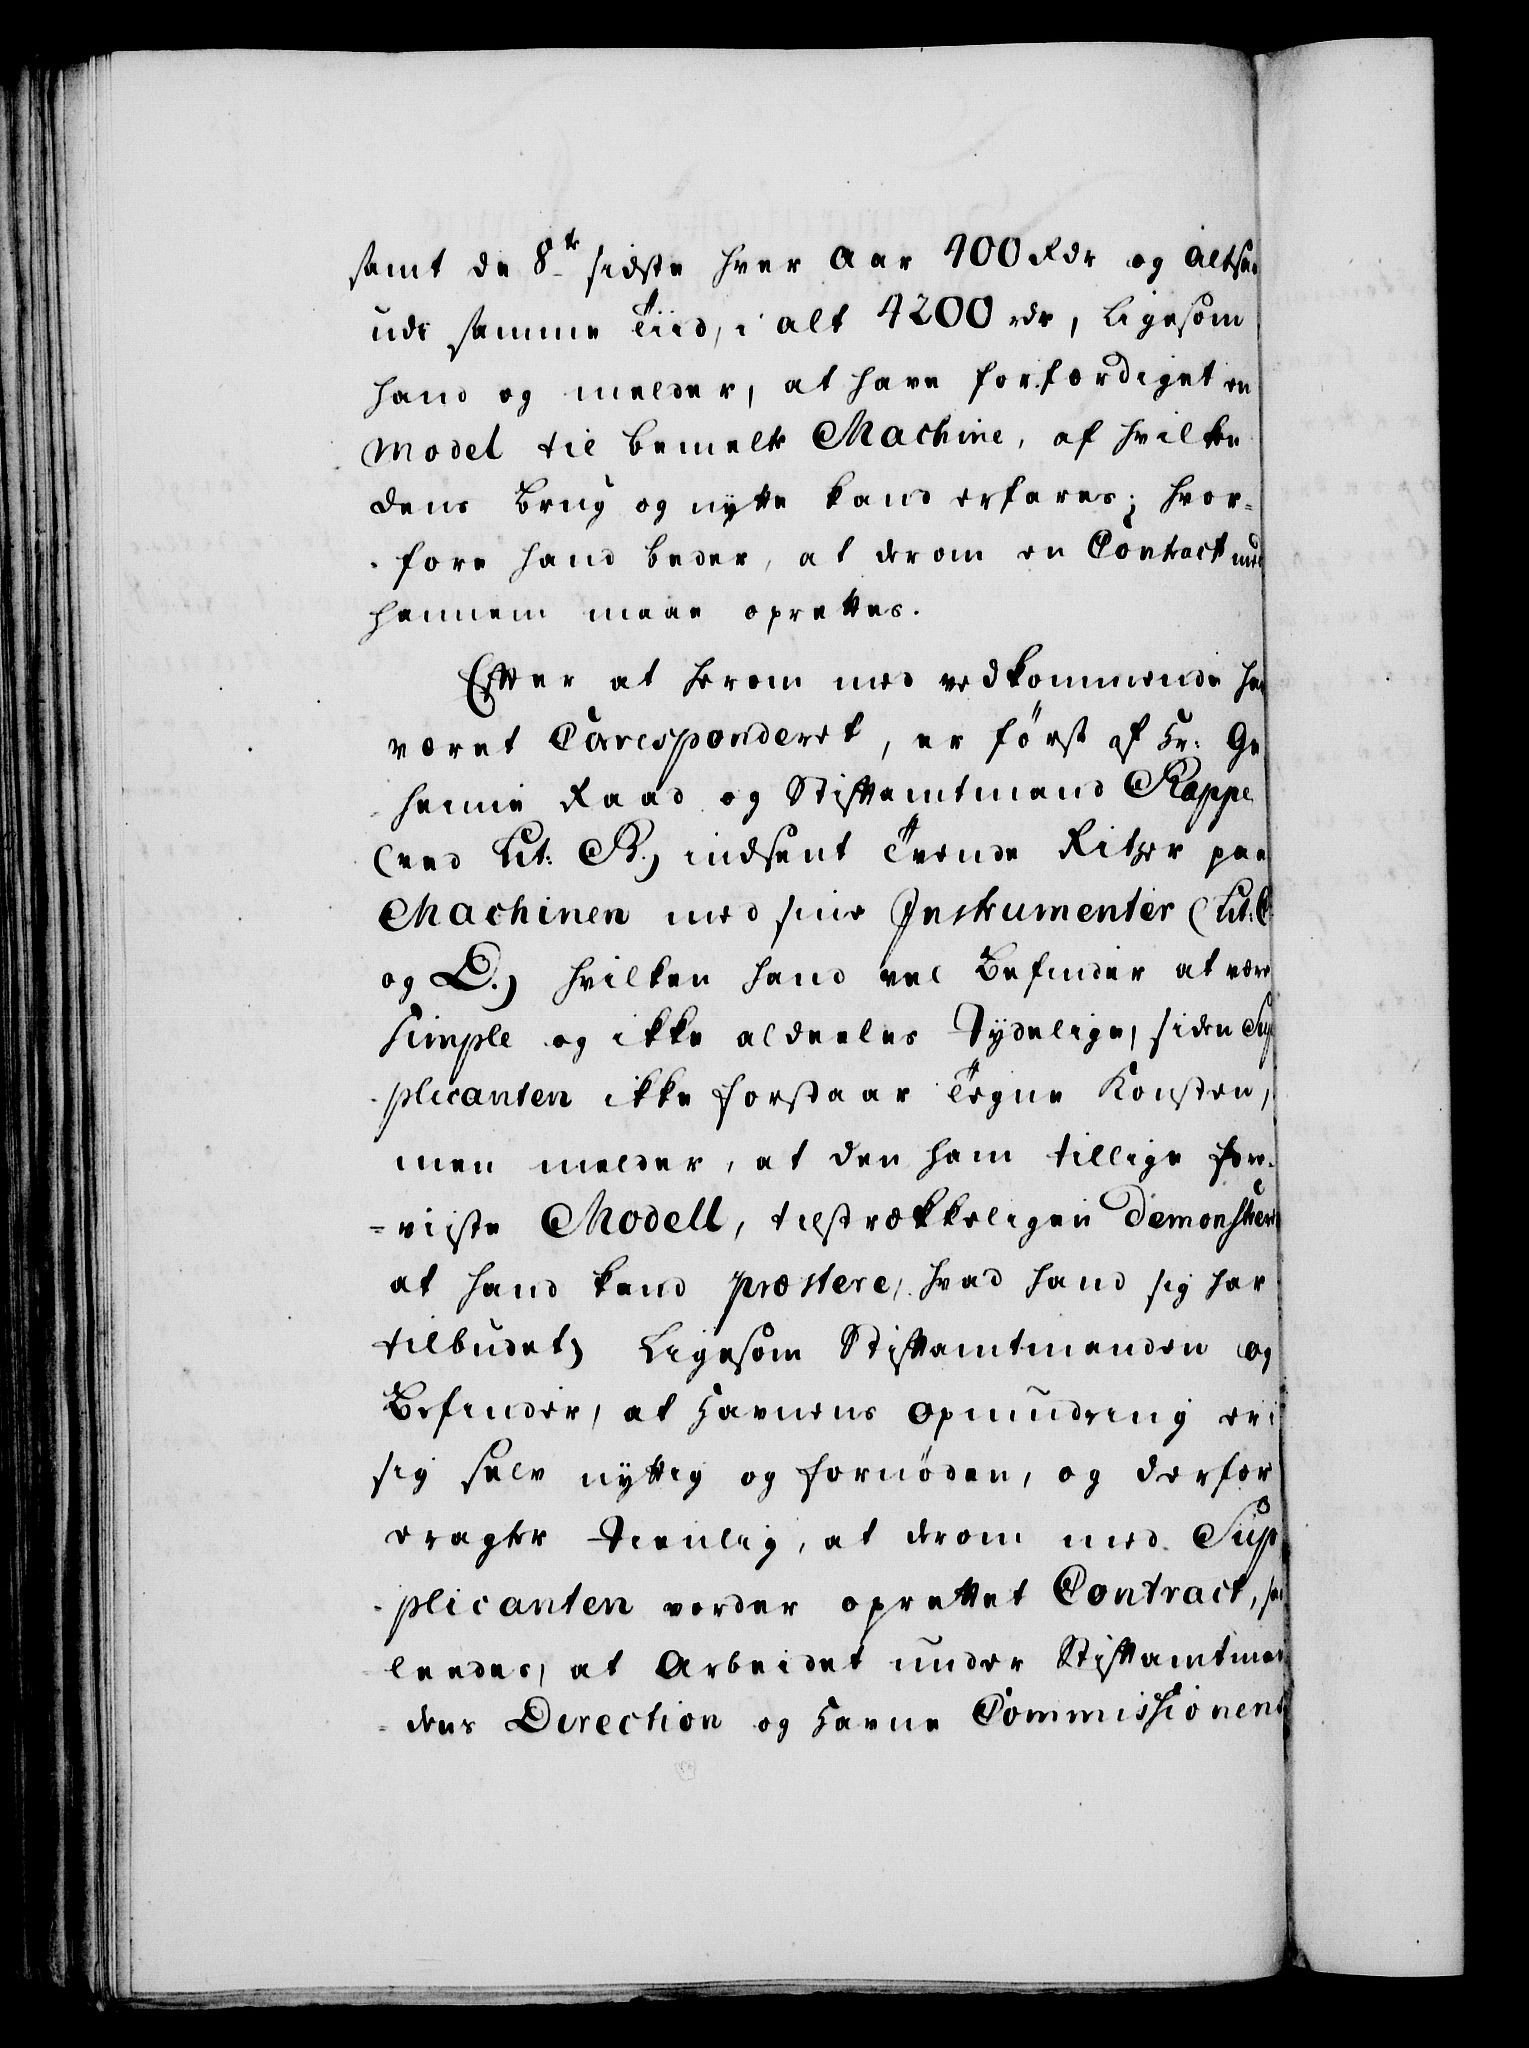 samt de 8te sidste hver Aar 400 Rdr og altsaa
udi samme Tiid, i alt 4200 rdr, Ligesom
hand og melder, at have forfærdiget en
Model til bemelte Machine, af hvilken
dens Brug og nytte kand erfares; hvor-
fore hand beder, at derom en Contract med
hannem maae oprettes.
Efter at herom med vedkommende har
været Coresponderet, er först af Hr: Ge
heime Raad og Stiftamtmand Rappe
(ved Lit: B.) indsent Tvende Ritzer paa
Machinen med sine Instrumenter (Lit: C
og D.) hvilken hand vel Befinder at være
Simple og ikke aldeeles Tydelige, siden Sup
plicanten ikke forstaar Tegne Konsten,
men melder, at den ham tillige fore-
-viiste Modell, tilstrækkeligen demonstrer
at hand kand præstere, hvad hand sig har
tilbudet; Ligesom Stiftamtmanden og
Befinder, at Havnens opmudring er i
sig selv nyttig og fornöden, og derfor
eragter Tienlig, at derom med Sup
plicanten vorder oprettet Contract, saa
leedes, at Arbeidet under Stiftamtman
dens Direction og Havne Commissionens